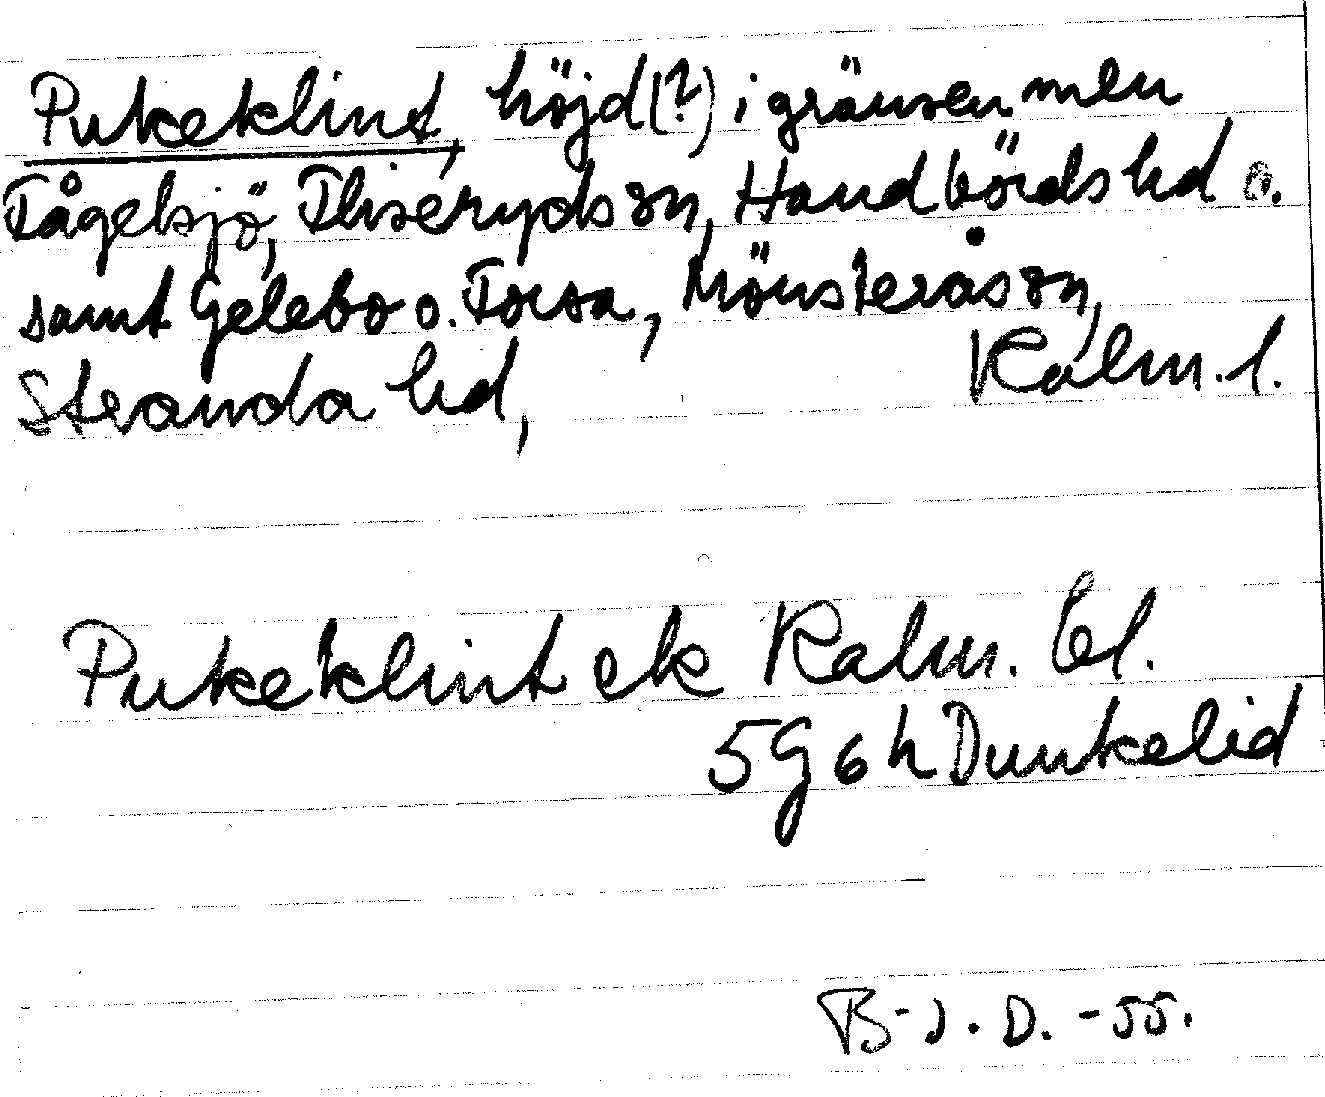 Pukeklint, höjd(?) i gränsen mln
Fågelsjö, Fliseryds sn, Handbörds hd o.
samt Gelebo o. Torsa, Mönsterås sn,
Stranda hd, Kalm. l.
Pukeklint ek Kalm. bl.
5G6h Dunkelid
B-J.D. -55.